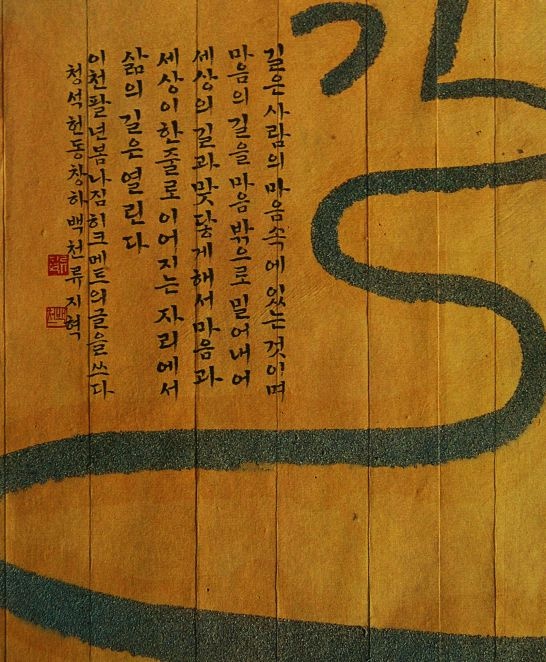 길
길은 사람의 마음속에 있는 것이며
마음의 길을 마음 밖으로 밀어내어
세상의 길과 맞닿게 해서 마음과
세상이 한 줄로 이어지는 자리에서
삶의 길은 열린다
이천팔년 봄 나짐 히크메트의 글을 쓰다
청석헌 동창하 백천 류지혁